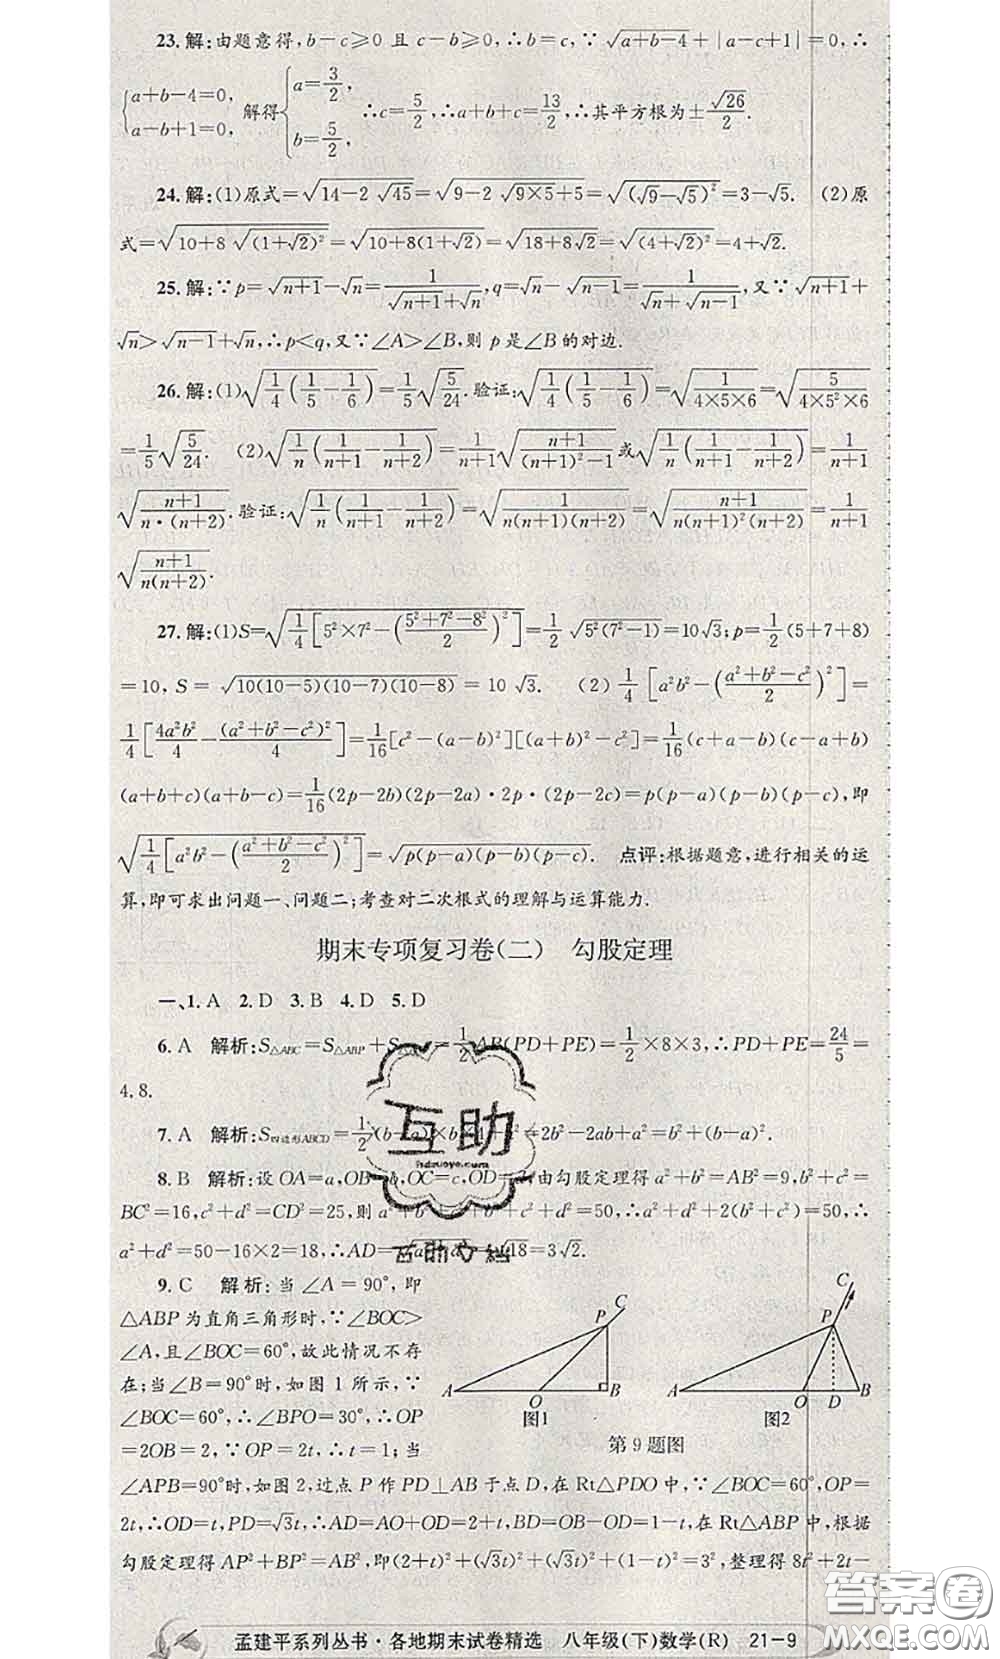 23.解:由题意得,b-c⩾0 且 c-b⩾0,∴b=c,∵√(a+b-4)+|a-c+1|=0,∴
{a+b-4=0, a-b+1=0, 解得{a=3/2, b=5/2, ∴c=5/2,∴a+b+c=13/2,∴其平方根为±√26/2.
24.解:(1)原式=√(14-2√45)=√(9-2√(9×5)+5)=√((√9-√5)²)=3-√5. (2)原
式=√(10+8√((1+√2)²))=√(10+8(1+√2))=√(18+8√2)=√((4+√2)²)=4+√2.
25.解:∵p=√(n+1)-√n=1/(√(n+1)+√n),q=√n-√(n-1)=1/(√n+√(n-1)),又∵√(n+1)+
√n>√(n-1)+√n,∴p<q,又∵∠A>∠B,则 p 是∠B的对边.
26.解:(1)√(1/4(1/5-1/6))=1/5√(5/24).验证:√(1/4(1/5-1/6))=√(1/(4×5×6))=√(5/(4×5²×6))
=1/5√(5/24). (2)√(1/n(1/(n+1)-1/(n+2)))=1/(n+1)√((n+1)/((n+1)²-1))或√(1/n(1/(n+1)-1/(n+2)))=1/(n+1)
√((n+1)/(n·(n+2))).验证:√(1/n(1/(n+1)-1/(n+2)))=√(1/(n(n+1)(n+2)))=√((n+1)/(n(n+1)²(n+2)))=1/(n+1)
√((n+1)/(n(n+2))).
27.解:(1)S=√(1/4[5²×7²-((5²+7²-8²)/2)²])=1/2√(5²(7²-1))=10√3;p=1/2(5+7+8)
=10,S=√(10(10-5)(10-7)(10-8))=10√3. (2)1/4[a²b²-((a²+b²-c²)/2)²]=
1/4[4a²b²/4-(a²+b²-c²)²/4]=1/16[c²-(a-b)²][(a+b)²-c²]=1/16(c+a-b)(c-a+b)
(a+b+c)(a+b-c)=1/16(2p-2b)(2p-2a)·2p·(2p-2c)=p(p-a)(p-b)(p-c),即
√(1/4[a²b²-((a²+b²-c²)/2)²])=√(p(p-a)(p-b)(p-c)). 点评:根据题意,进行相关的运
算,即可求出问题一、问题二;考查对二次根式的理解与运算能力.
期末专项复习卷(二) 勾股定理
一、1.A 2.D 3.B 4.D 5.D
6.A 解析:S△ABC=S△ABP+S =1/2AB(PD+PE)=1/2×8×3,∴PD+PE=24/5=
4.8.
7.A 解析:S四边形ABCD=1/2(b-a)×b 2b²-2ab+a²=b²+(b-a)².
8.B 解析:设OA=a,OB=b,OC=c,OD= 由勾股定理得a²+b²=AB²=9,b²+c²=
BC²=16,c²+d²=CD²=25,则a²+b²+ +c²+d²=50,∴a²+d²+2(b²+c²)=50,∴
a²+d²=50-16×2=18,∴AD= √18=3√2.
9.C 解析:当∠A=90°,即
△ABP为直角三角形时,∵∠BOC>
∠A,且∠BOC=60°,故此情况不存
在;当∠B=90°时,如图1所示,∵
∠BOC=60°,∴∠BPO=30°,∴OP
=2OB=2,∵OP=2t,∴t=1;当
∠APB=90°时,如图2,过点P作PD⊥AB于点D,在Rt△PDO中,∵∠BOC=60°,OP=
2t,∴OD=t,PD=√3t,∴AD=AO+OD=2+t,BD=OB-OD=1-t,在Rt△ABP中,根据
勾股定理得AP²+BP²=AB²,即(2+t)²+(√3t)²+(√3t)²+(1-t)²=3²,整理得8t²+2t-
A O B P C
图1
A O D B P C
图2
第9题图
互助
互助文档
答案圈
孟建平系列丛书·各地期末试卷精选 八年级(下)数学(R) 21-9
MXQE.COM